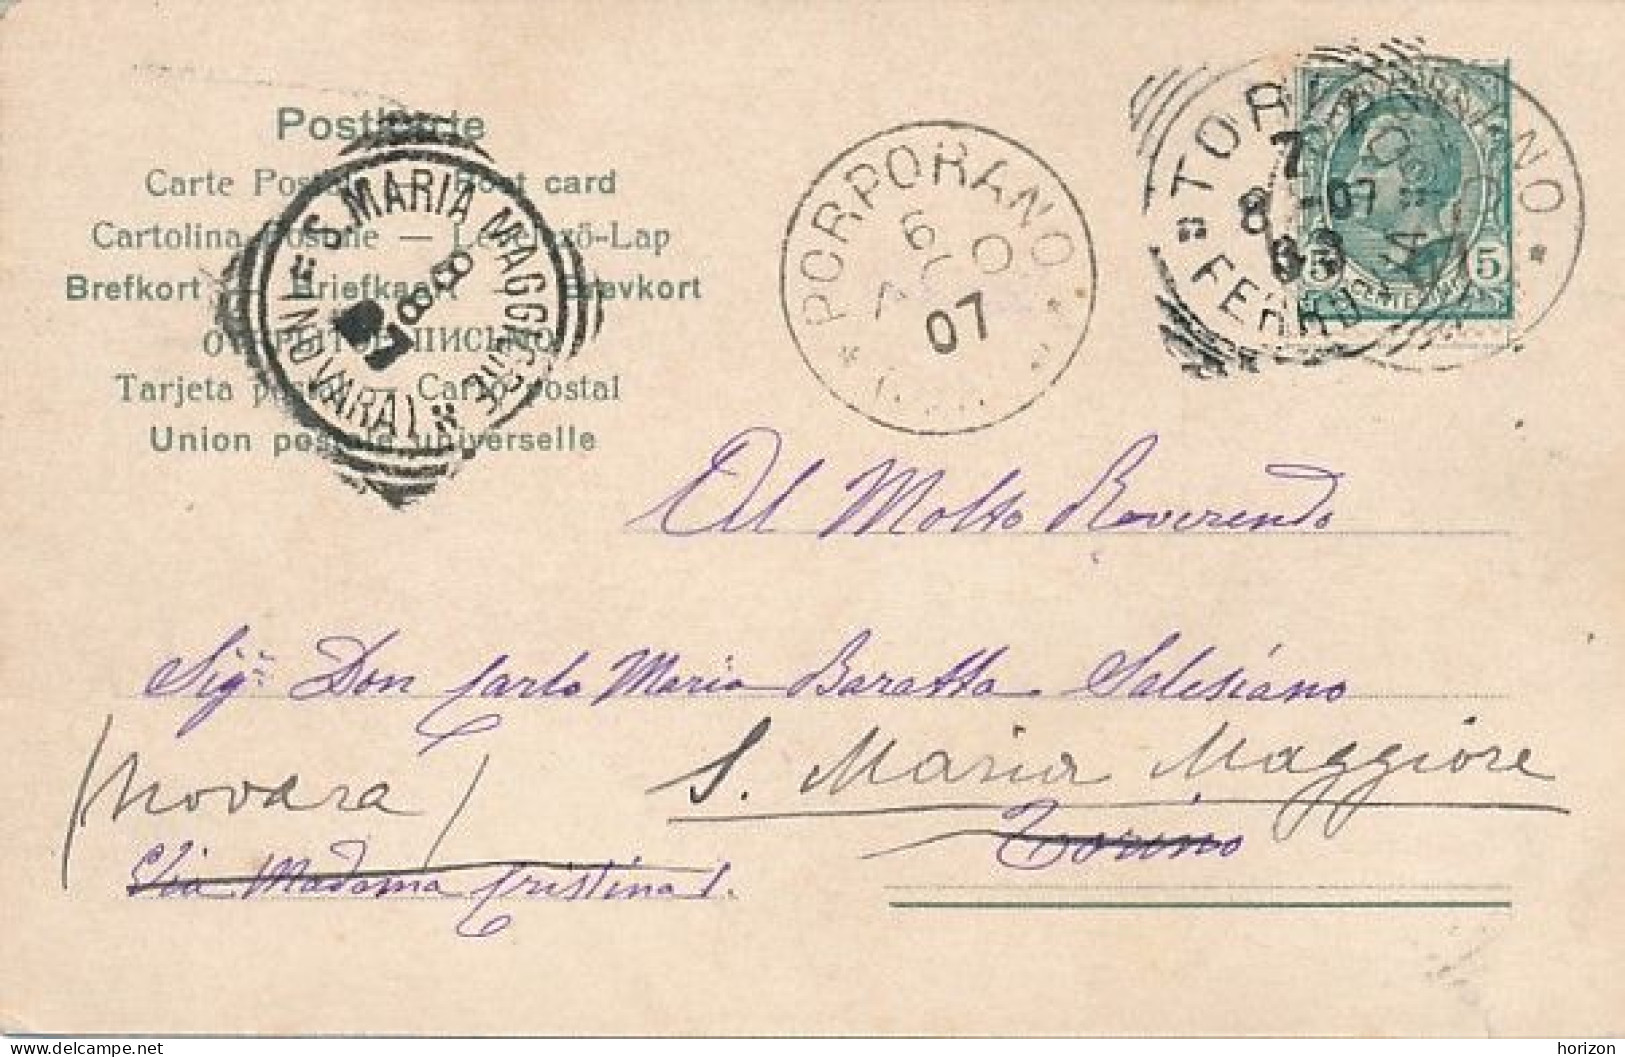 Postkarte
Carte Postale — Post card
Cartolina Postale — Levelező-Lap
Brefkort — Briefkaart — Brevkort
ОТКРЫТОЕ ПИСЬМО
Tarjeta postal — Cartão postal
Union postale universelle
S. MARIA MAGGIORE
(NOVARA)
8 8
PORPORANO
07
TORINO
7
8 - 07
FERROVIA
5
CENTESIMI
5
Al Molto Reverendo
Sigr. Don Carlo Maria Baratta Salesiano
(Novara) S. Maria Maggiore
Torino
Via Madama Cristina 1.
horizon